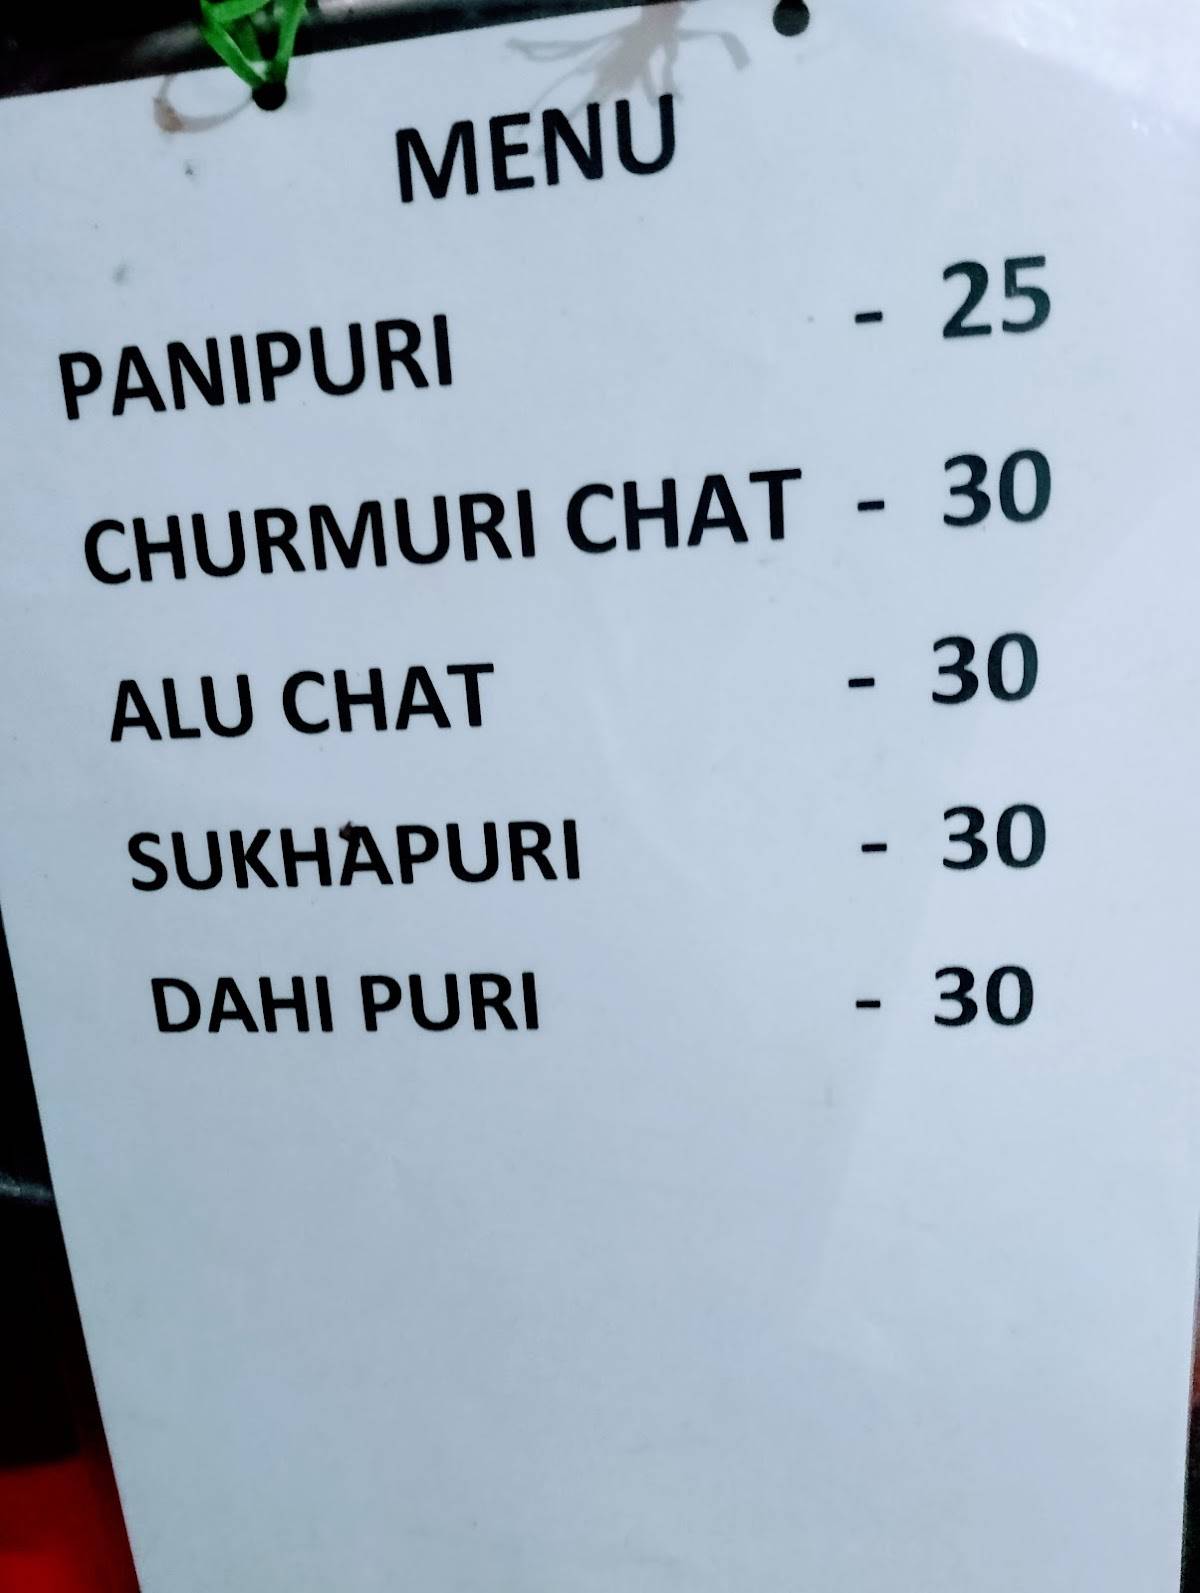 MENU
PANIPURI - 25
CHURMURI CHAT - 30
ALU CHAT - 30
SUKHAPURI - 30
DAHI PURI - 30